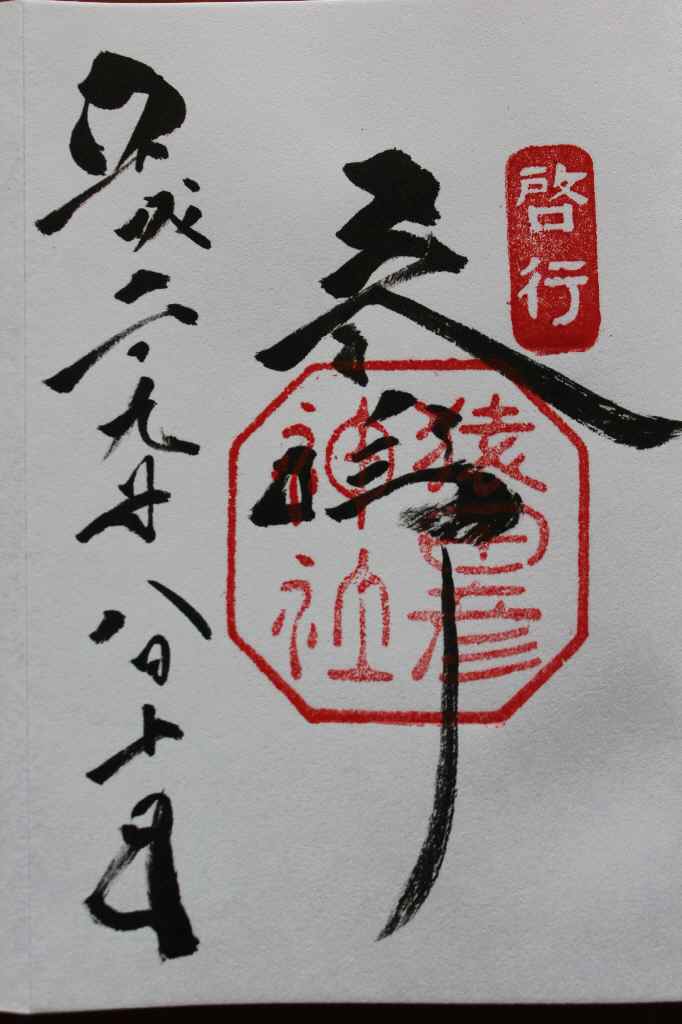 啓行
奉拝
猿田彦
神社
平成二九年八月十日